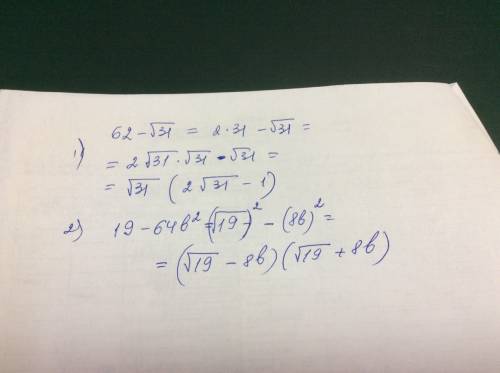 1) 62 - √31 = 2·31 - √31 =
= 2√31·√31 - √31 =
= √31 (2√31 - 1)
2) 19 - 64b² = (√19)² - (8b)² =
= (√19 - 8b)(√19 + 8b)